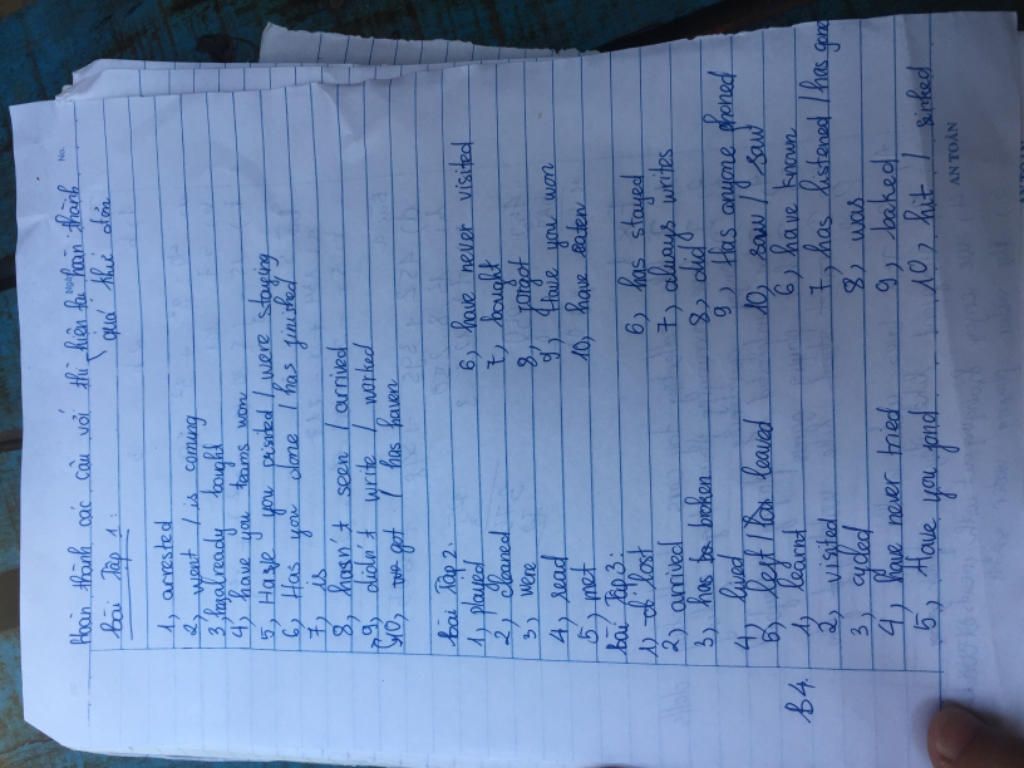 No.
Hoàn thành các câu với thì hiện tại hoàn thành
quá khứ đơn
Bài Tập 1:
1, arrested
2, went / is coming
3, already bought
4, have you teams won
5, Have you visited / were staying
6, Has you done / has finished
7, is
8, hasn't seen / arrived
9, didn't write / worked
10, got / has haven
Bài Tập 2:
1, played
2, cleaned
3, were
4, read
5, met
6, have never visited
7, bought
8, forgot
9, Have you won
10, have eaten
Bài Tập 3:
1, lost
2, arrived
3, has broken
4, lived
5, left / has leaved
6, has stayed
7, always writes
8, did
9, Has anyone phoned
10, saw / saw
B4.
1, learnt
2, visited
3, cycled
4, have never tried
5, Have you fond
6, have known
7, has listened / has gone
8, was
9, baked
10, hit / sinked
AN TOÀN